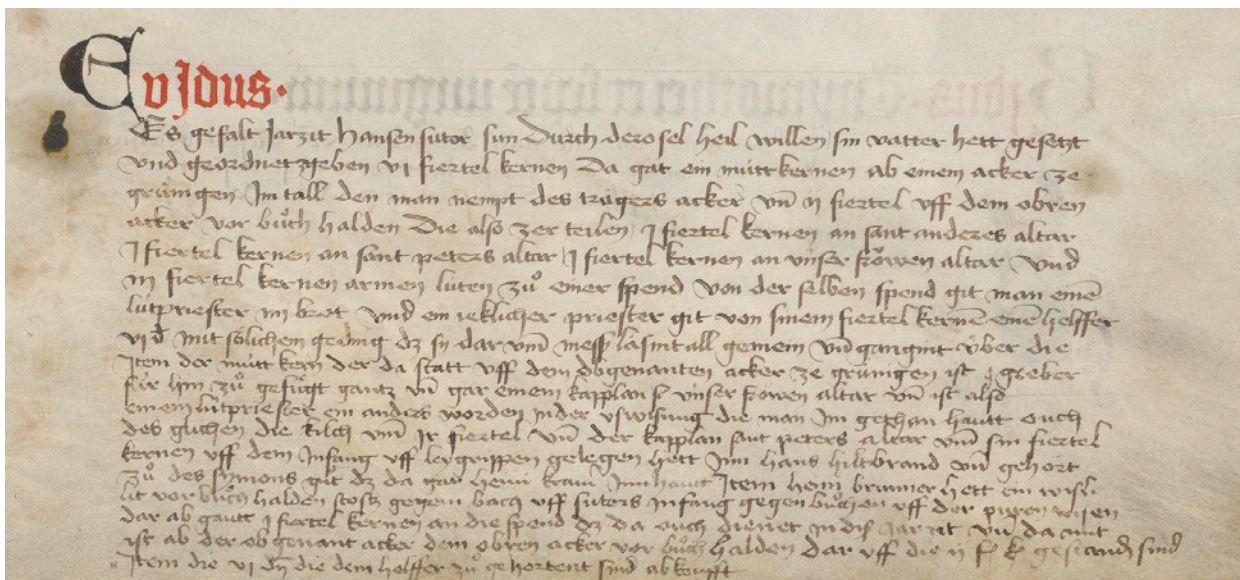 E v Idus.
Es gefalt Jarzit hansen sutor sun Durch dero sel heil willen sin vatter hett gesetzt
vnd geordnet zgeben vi fiertel kernen Da gat ein mütt kernen ab einem acker ze
grüningen Im tall den man nempt des tragers acker vn̄ ij fiertel vff dem obren
acker vor bůch halden Die also zerteilen j fiertel kernen an sant anderes altar
j fiertel kernen an sant peters altar j fiertel kernen an vnser frowen altar Vnd
iij fiertel kernen armen lüten zů einer spend von der selben spend git man einē
lütpriester iiij brot vnd ein ieklicher priester git von sinem fiertel kernē einē helffer
vi d mit sölichem geding dz sy dar vm̄ mess lasint all gemein vn̄ gangint über die
Item der mütt kern der da statt vff dem obgenanten acker ze grüningen ist greber
für hin zů gefügt gantz vn̄ gar einem kapplan vnser frowen altar vn̄ ist also
einem lütpriester ein anders worden in der vswisung die man im gethan hautt ouch
des glichen die kilch vm̄ Ir fiertel vn̄ der kapplan sant peters altar vm̄ sin fiertel
kernen vff dem Infang vff leygruppen gelegen hett Inn hans hiltbrand vn̄ gehört
zů des symons gůt dz da gar heini Inn hautt Item heini brunner hett ein
lit vor bůch halden stost gegem bach vff suters Infang gegen bůchen vff der
dar ab gautt j fiertel kernen an die spend dz da ouch dienet in dis Jarzit vn̄ da mit
ist ab der obgenant acker dem obren acker vor bůch halden dar vff die ij f k gestand sind
Item die vi dn̄ die dem helffer zů gehortent sind abkoufft